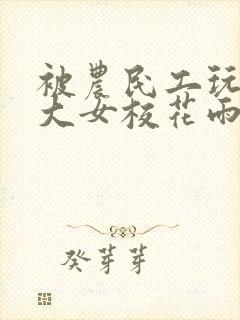 被農民工玩
大女校花雨
癸芽芽